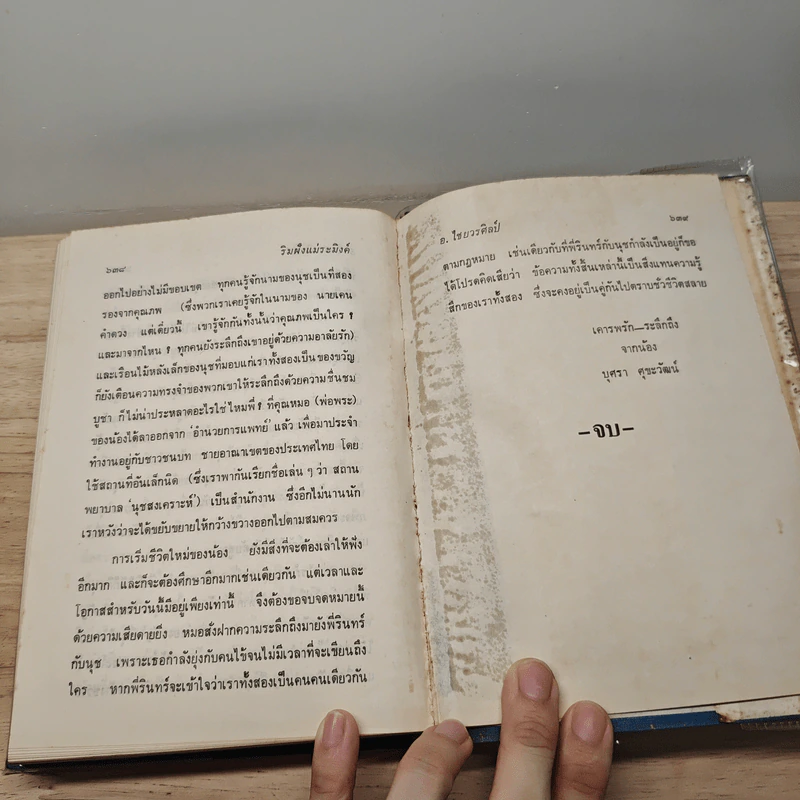 ๖๓๘
ริมฝั่งแม่ระมิงค์
ออกไปอย่างไม่มีขอบเขต ทุกคนรู้จักนามของนุชเป็นที่สอง
รองจากคุณภพ (ซึ่งพวกเราเคยรู้จักในนามของ นายเคน
คำดวง แต่เดี๋ยวนี้ เขารู้จักกันทั้งนั้นว่าคุณภพเป็นใคร ?
และมาจากไหน ? ทุกคนยังระลึกถึงเขาอยู่ด้วยความอาลัยรัก)
และเรือนไม้หลังเล็กของนุชที่มอบแก่เราทั้งสองเป็นของขวัญ
ก็ยังเตือนความทรงจำของพวกเขาให้ระลึกถึงด้วยความชื่นชม
บูชา ก็ไม่น่าประหลาดอะไรใช่ไหมพี่ ? ที่คุณหมอ (พ่อพระ)
ของน้องได้ลาออกจาก ‘อำนวยการแพทย์’ แล้ว เพื่อมาประจำ
ทำงานอยู่กับชาวชนบท ชายอาณาเขตของประเทศไทย โดย
ใช้สถานที่อันเล็กนิด (ซึ่งเราพากันเรียกชื่อเล่น ๆ ว่า สถาน
พยาบาล ‘นุชสงเคราะห์’) เป็นสำนักงาน ซึ่งอีกไม่นานนัก
เราหวังว่าจะได้ขยับขยายให้กว้างขวางออกไปตามสมควร
การเริ่มชีวิตใหม่ของน้อง ยังมีสิ่งที่จะต้องเล่าให้พัง
อีกมาก และก็จะต้องศึกษาอีกมากเช่นเดียวกัน แต่เวลาและ
โอกาสสำหรับวันนี้มีอยู่เพียงเท่านี้ จึงต้องขอจบจดหมายนี้
ด้วยความเสียดายยิ่ง หมอสั่งฝากความระลึกถึงมายังพี่รินทร์
กับนุช เพราะเธอกำลังยุ่งกับคนไข้จนไม่มีเวลาที่จะเขียนถึง
ใคร หากพี่รินทร์จะเข้าใจว่าเราทั้งสองเป็นคนคนเดียวกัน
อ. ไชยวรศิลป์
๖๓๙
ตามกฎหมาย เช่นเดียวกับที่พี่รินทร์กับนุชกำลังเป็นอยู่ก็ขอ
ได้โปรดคิดเสียว่า ข้อความทั้งสิ้นเหล่านี้เป็นสิ่งแทนความรู้
สึกของเราทั้งสอง ซึ่งจะคงอยู่เป็นคู่กันไปตราบชั่วชีวิตสลาย
เคารพรัก—ระลึกถึง
จากน้อง
บุศรา ศุขะวัฒน์
–จบ–